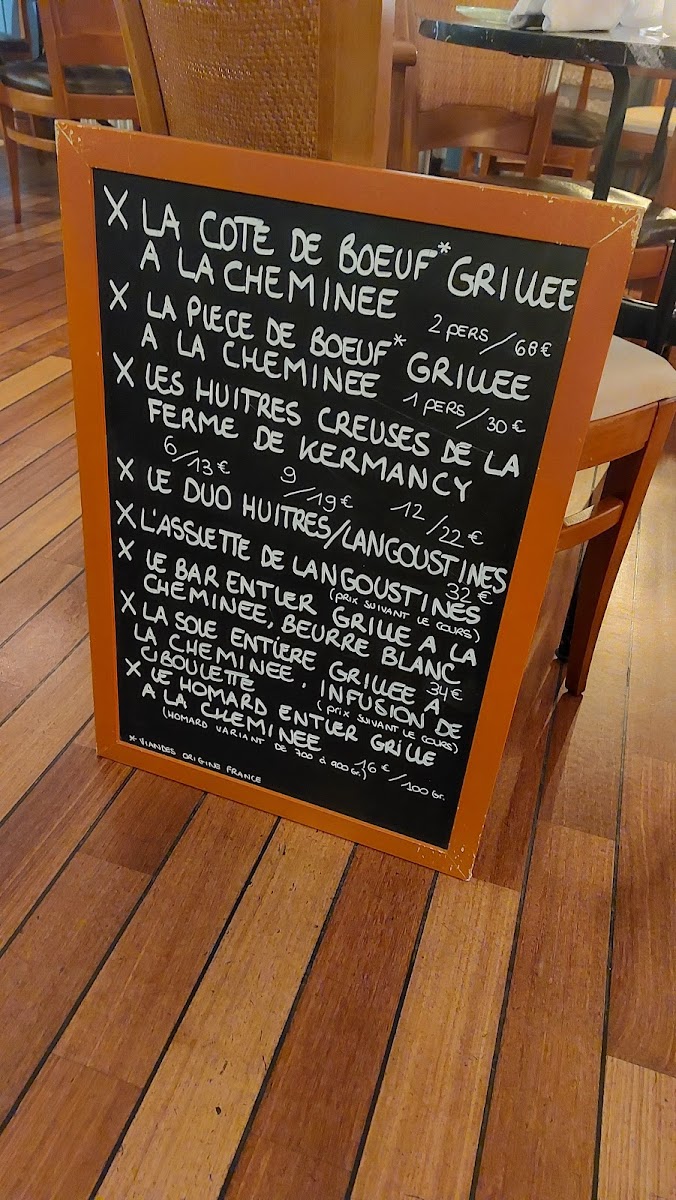 X LA COTE DE BOEUF* GRILLEE
A LA CHEMINEE
2 PERS/68€
X LA PIECE DE BOEUF* GRILLEE
A LA CHEMINEE
1 PERS/30€
X LES HUITRES CREUSES DE LA
FERME DE KERMANCY
6/13€ 9/19€ 12/22€
X LE DUO HUITRES/LANGOUSTINES
32€
X L'ASSIETTE DE LANGOUSTINES
(PRIX SUIVANT LE COURS)
X LE BAR ENTIER GRILLE A LA
CHEMINEE, BEURRE BLANC
34€
X LA SOLE ENTIERE GRILLEE A
LA CHEMINEE, INFUSION DE
CIBOULETTE
(PRIX SUIVANT LE COURS)
X LE HOMARD ENTIER GRILLE
A LA CHEMINEE
(HOMARD VARIANT DE 700 à 900 Gr.) 16€/100 Gr.
* VIANDES ORIGINE FRANCE